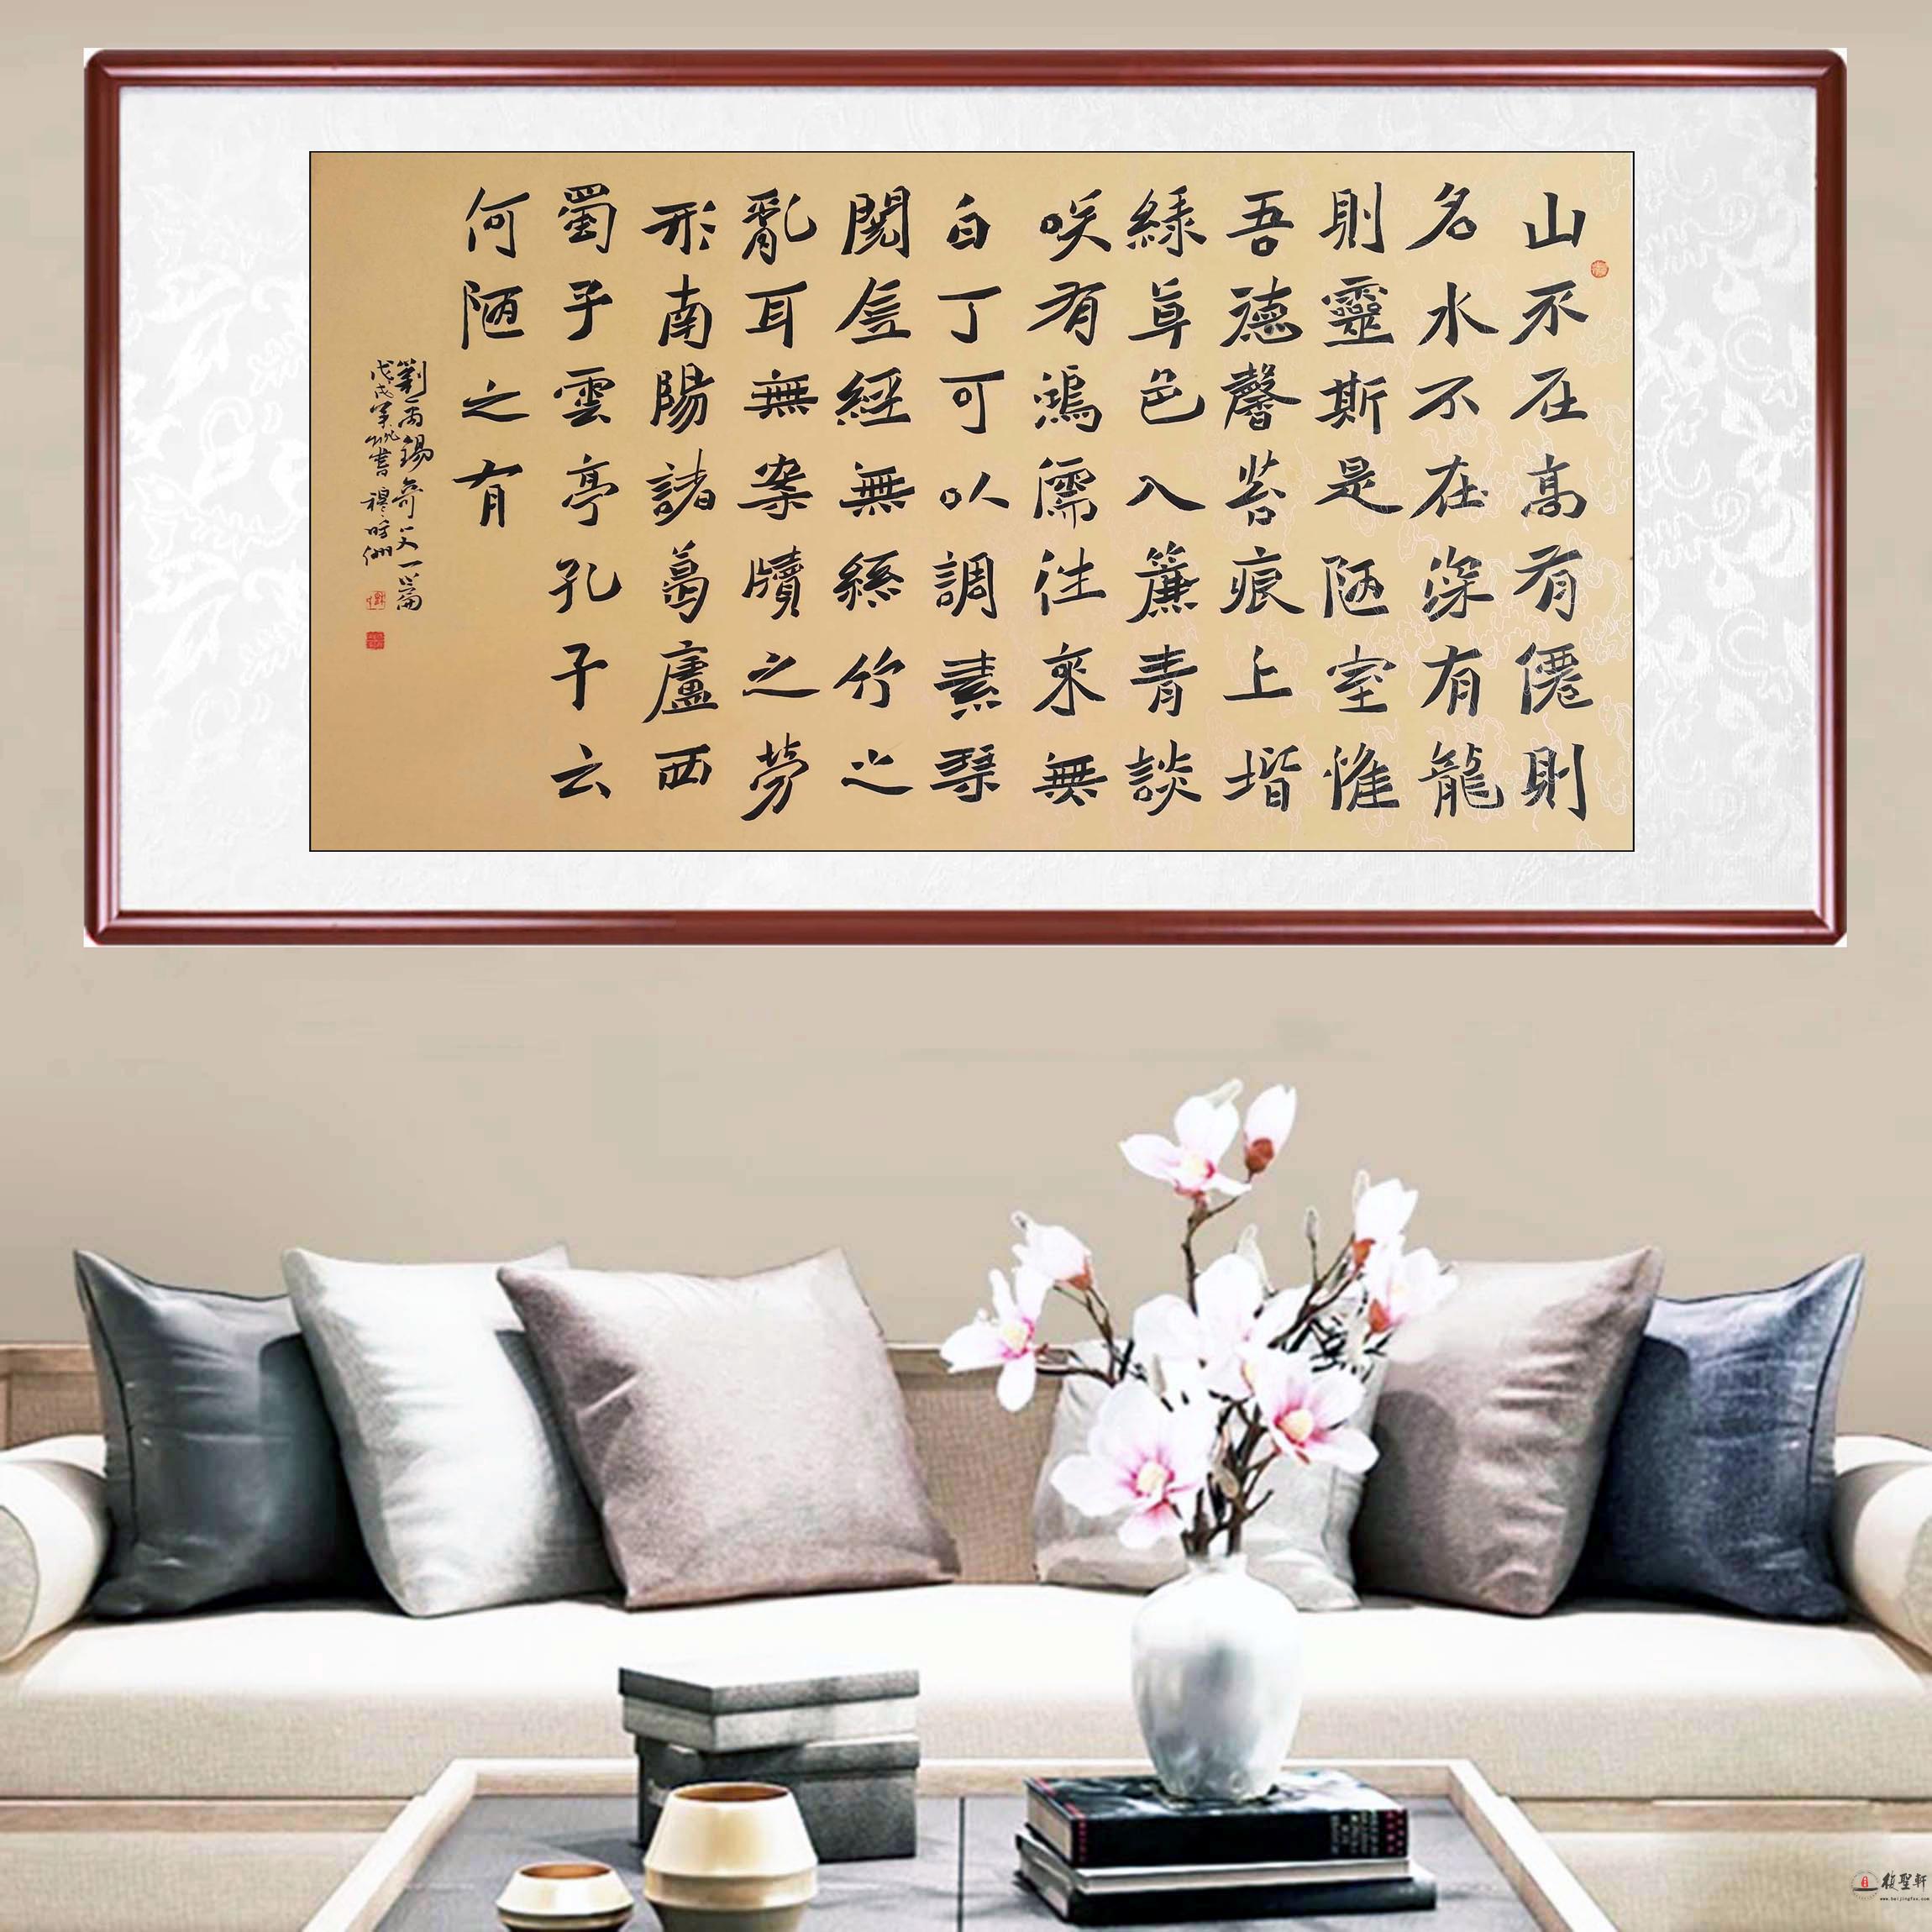 山不在高有僊則
名水不在深有龍
則靈斯是陋室惟
吾德馨苔痕上堦
綠草色入簾青談
咲有鴻儒往來無
白丁可以調素琴
閱金經無絲竹之
亂耳無案牘之勞
形南陽諸葛廬西
蜀子雲亭孔子云
何陋之有
劉禹錫奇文一篇
戊戌 書
聖軒
www.beijingfsx.com